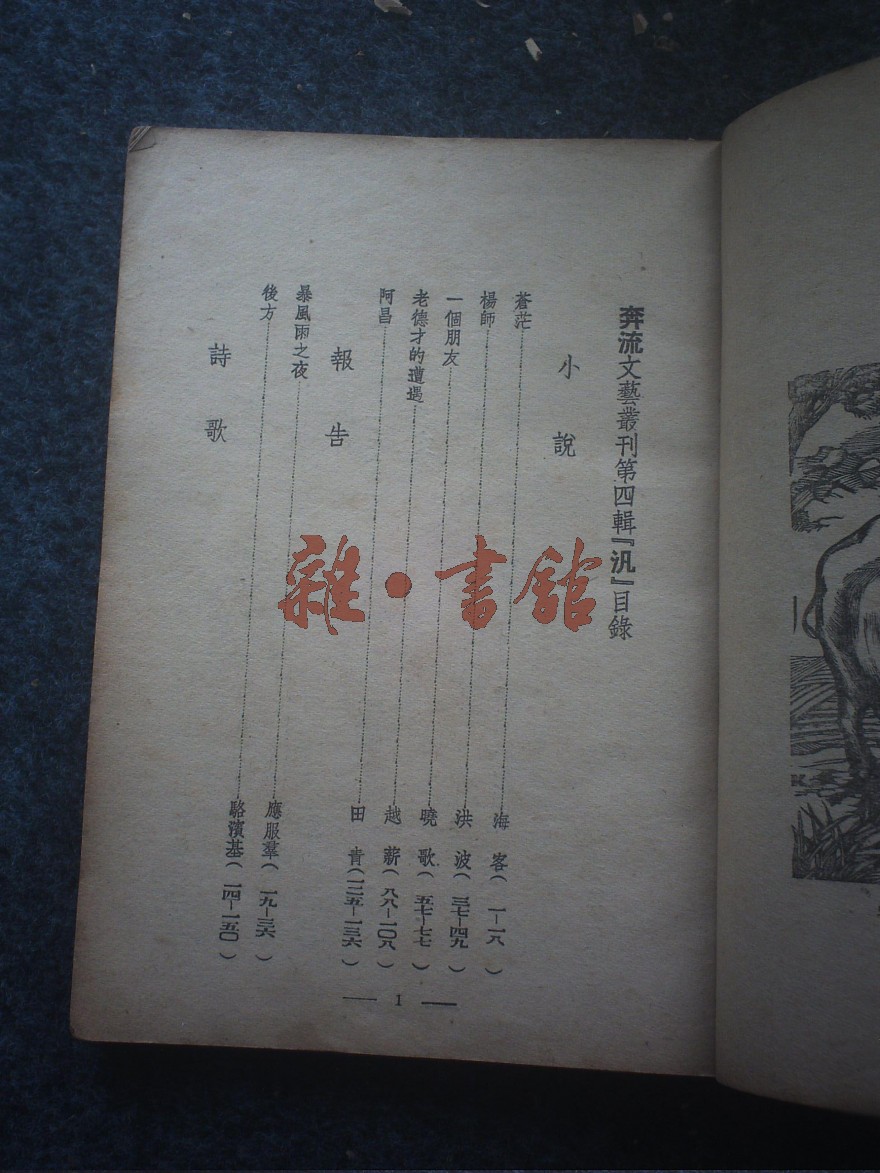 奔流文藝叢刊第四輯『汎』目錄
小說
蒼茫 海客(一-一八)
楊師 洪波(三七-四九)
一個朋友 曉歌(五七-七七)
老德才的遭遇 越薪(八八-一〇八)
阿昌 田青(一二五-一三六)
報告
暴風雨之夜 應服羣(一九-三六)
後方 駱濱基(一四-一五〇)
詩歌
1
雜·書館